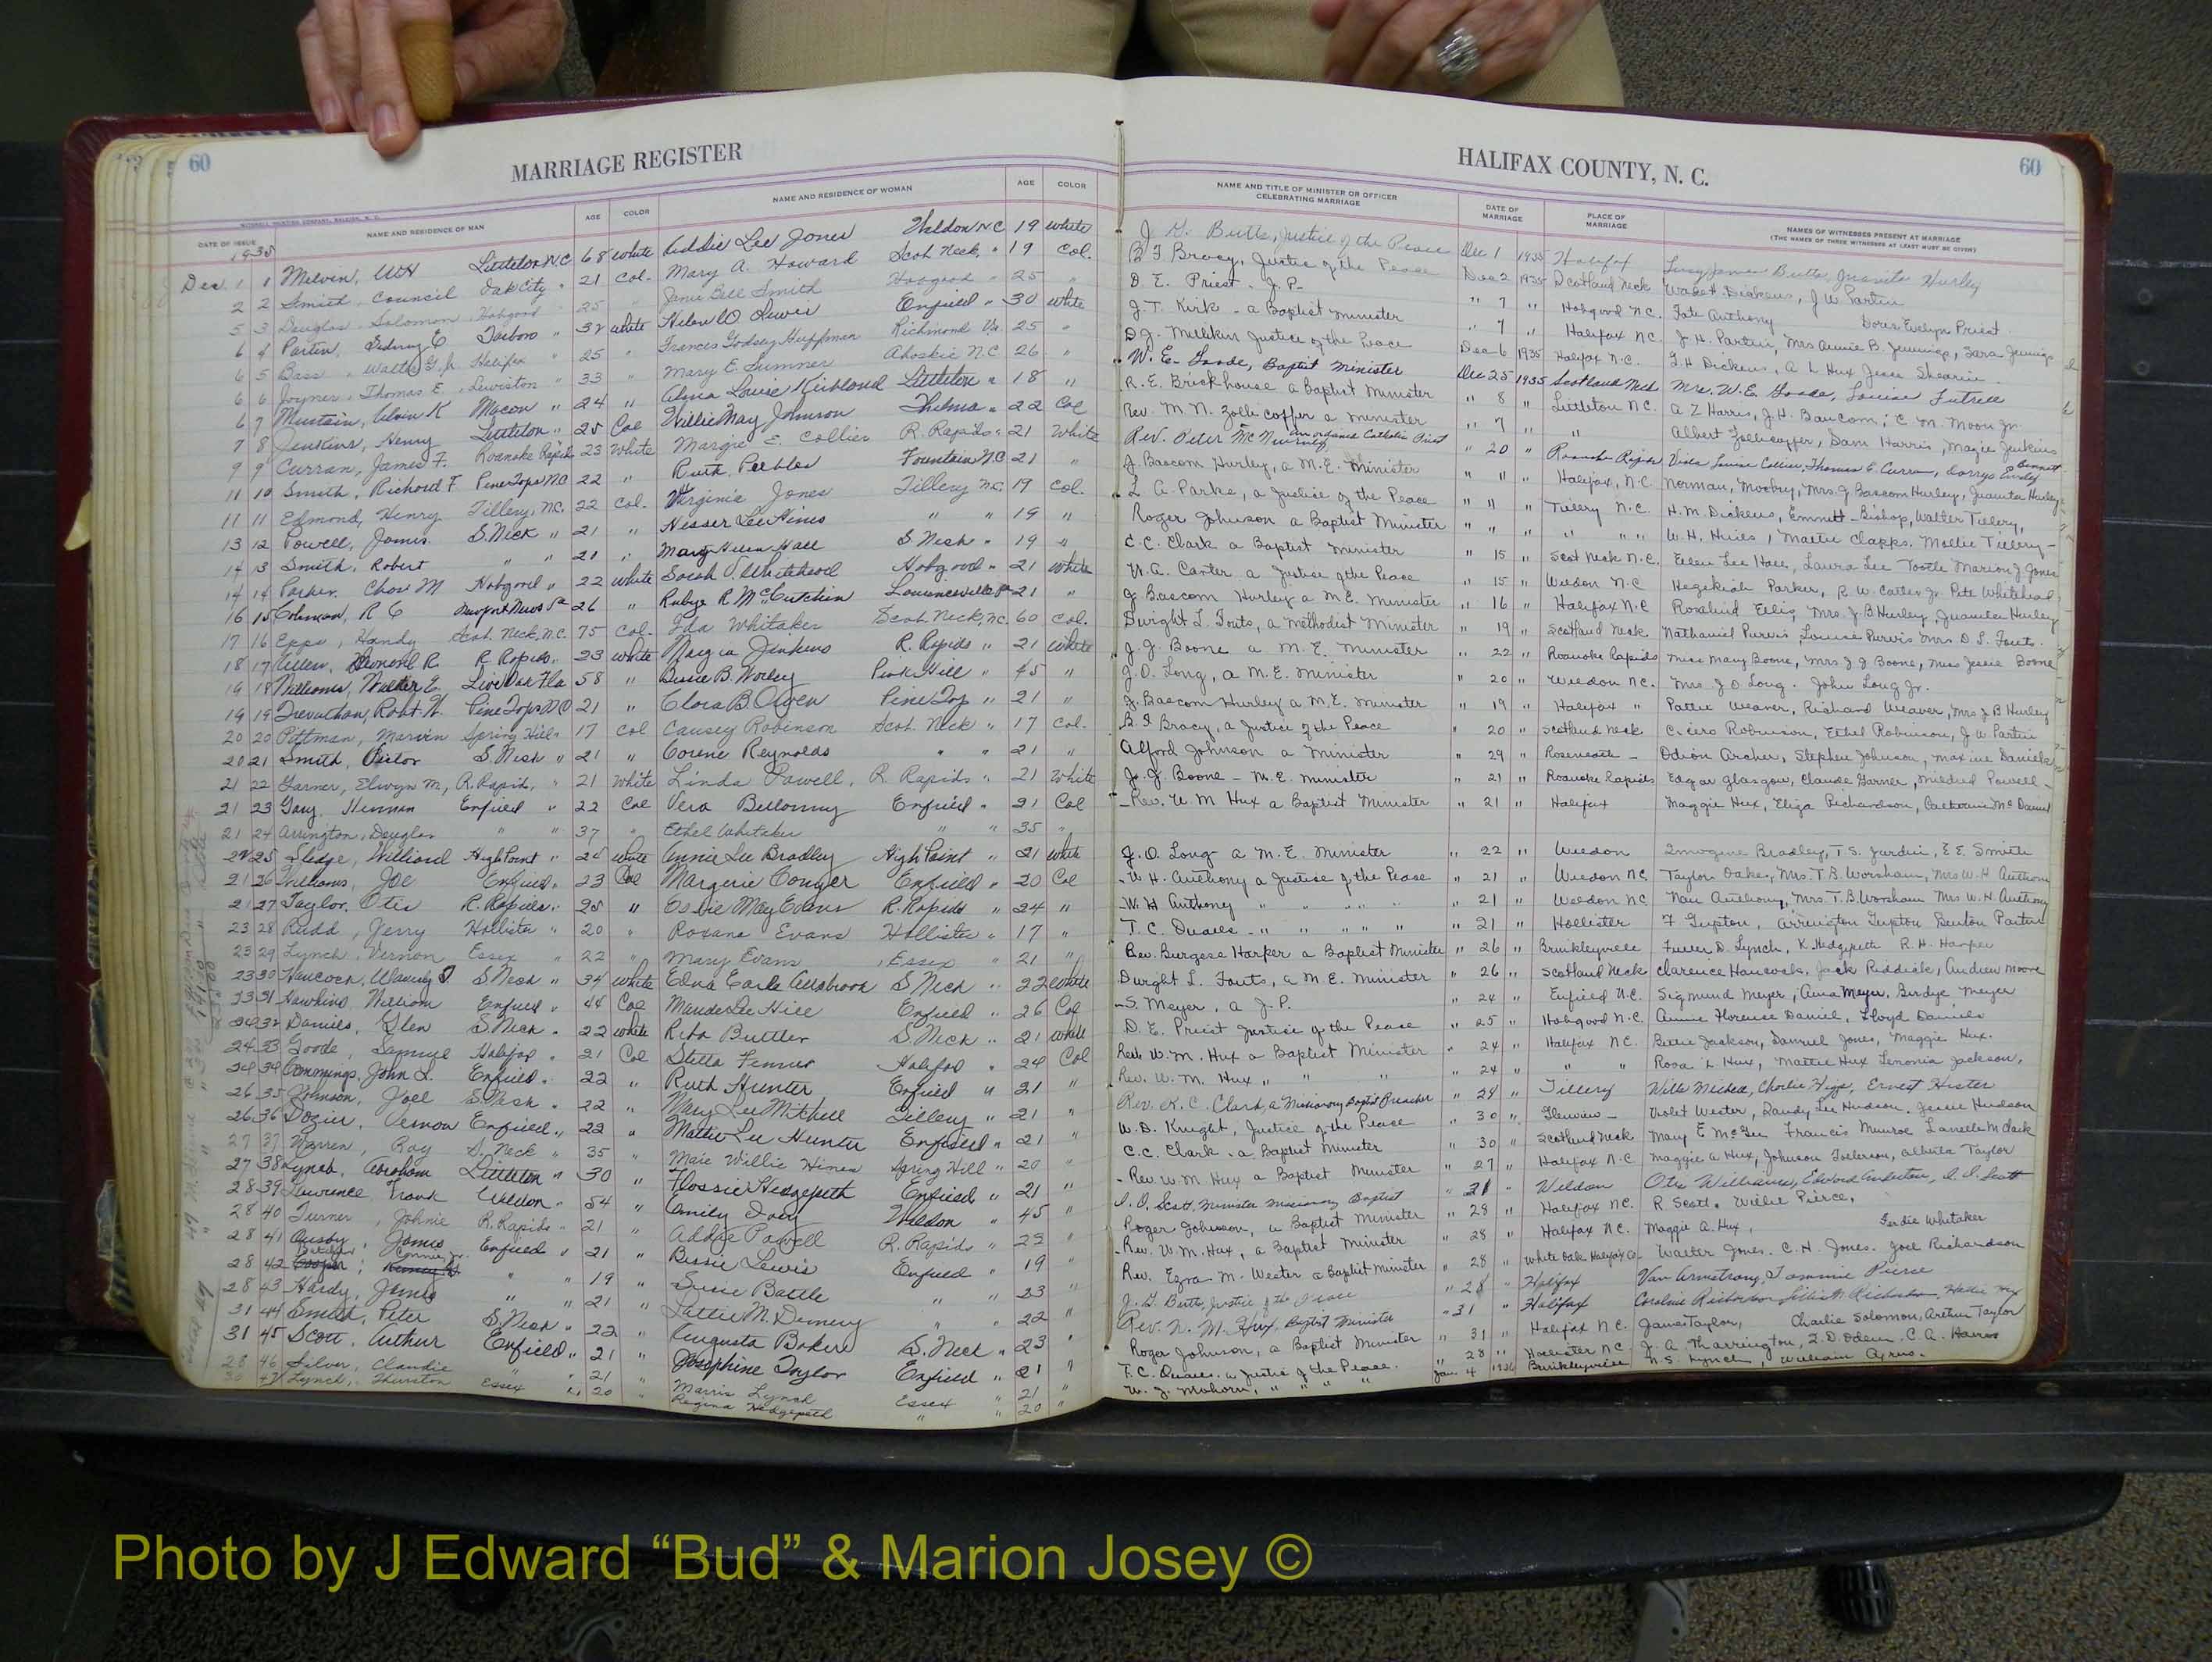 60
MARRIAGE REGISTER
HALIFAX COUNTY, N. C.
60
DATE OF ISSUE NAME AND RESIDENCE OF MAN AGE COLOR NAME AND RESIDENCE OF WOMAN AGE COLOR NAME AND TITLE OF MINISTER OR OFFICER CELEBRATING MARRIAGE DATE OF MARRIAGE PLACE OF MARRIAGE NAMES OF WITNESSES PRESENT AT MARRIAGE
(THE NAMES OF THREE WITNESSES AT LEAST MUST BE GIVEN)
1935
Dec. 1 1 Melvin, WH Littleton N.C. 68 white Lee Jones Weldon N.C. 19 white Justice of the Peace Dec 1 1935 Halifax Butts, Juanita Hurley
2 2 Smith, Council Oak City " 21 Col. Mary A. Howard Scot. Neck, " 19 Col. B. I. Bracy, Justice of the Peace Dec 2 1935 Scotland Neck Dickens, J. W. Partin
5 3 Douglas, Solomon Hobgood 25 Janie Bell Smith Hobgood " 25 D. E. Priest - J. P. " 7 " Hobgood N.C. Anthony Doris Evelyn Priest
6 4 Partin, Sidney E Tarboro " 32 white Helen O Lewis Enfield " 30 white J. T. Kirk - a Baptist Minister " 7 " Halifax N.C. J. H. Partin, Mrs Annie B. Jennings, Sara Jennings
6 5 Bass, Walter G. Jr. Halifax " 25 " Frances Godsey Huffman Richmond Va. 25 " D. J. Justice of the Peace Dec 6 1935 Halifax N.C. Dickens, A L Hux Jesse Shearin
6 6 Joyner, Thomas E, Lewiston " 33 " Mary E. Sumner Ahoskie N.C. 26 " W. E. Goode, Baptist Minister Dec 25 1935 Scotland Neck Mrs. W. E. Goode, Louise Futrell
6 7 Mustain, Alvin K Macon " 24 " Alma Louise Kirkland Littleton " 18 " R. E. Brickhouse a Baptist Minister " 8 " Littleton N.C. A Z Harris, J. H. Baucom, C. M. Moon Jr.
7 8 Jenkins, Henry Littleton " 25 Col Willie May Johnson Thelma " 22 Col Rev. M. N. Zollicoffer a minister " 7 " " Albert Zollicoffer, Sam Harris, Magie Jenkins
9 9 Curran, James F. Roanoke Rapids 23 White Margie E. Collier R. Rapids " 21 White Rev. Peter McNierney an ordained Catholic Priest " 20 " Roanoke Rapids Viola Louise Collier, Thomas E. Curran,
11 10 Smith, Richard F Pine Tops N.C. 22 " Ruth Peebles Fountain N.C. 21 " J. Bascom Hurley, a M.E. Minister " 11 " Halifax, N.C. Norman, Mrs. J Bascom Hurley, Juanita Hurley
11 11 Edmond, Henry Tillery, N.C. 22 Col. Virginia Jones Tillery N.C. 19 Col. L. A. Parks, a Justice of the Peace " 11 " Tillery N.C. H. M. Dickens, Emmett Bishop, Walter Tillery,
13 12 Powell, James S. Neck " 21 " Lee Hines " " 19 " Roger Johnson a Baptist Minister " " " " " " W. H. Hines, Mattie Clapps. Mollie Tillery
14 13 Smith, Robert " " 21 " Mary Helen Hall S. Neck " 19 " C. C. Clark a Baptist Minister " 15 " Scot Neck N.C. Ellen Lee Hall, Laura Lee Tootle Marion J Jones
14 14 Parker, M Hobgood " 22 white Sarah J. Whitehead Hobgood " 21 White W. A. Carter a Justice of the Peace " 15 " Weldon N.C Hezekiah Parker, R. W. Carter Jr. Pete Whitehead
16 15 Coleman, R C Newport News Va 26 " Rubye R McCutchen Lawrenceville Va 21 " J Bascom Hurley a M.E. Minister " 16 " Halifax N.C Rosalind Ellis, Mrs. J B Hurley, Juanita Hurley
17 16 Epps, Handy Scot. Neck, N.C. 75 Col. Ida Whitaker Scot. Neck, N.C. 60 Col. Dwight L. Fouts, a Methodist Minister " 19 " Scotland Neck Nathaniel Purvis, Louise Purvis Mrs D. L. Fouts
18 17 Allen, R. R. Rapids " 23 White Jenkins R. Rapids " 21 White J. J. Boone a M. E. Minister " 22 " Roanoke Rapids Miss Mary Boone, Mrs J J Boone, Miss Jessie Boone
19 18 Williams, Walter E. Live Oak Fla 58 " Bessie B. Worley Pink Hill " 45 " J. O. Long, a M.E. Minister " 20 " Weldon N.C. Mrs J O Long. John Long Jr.
19 19 Trevathan, Robt. H. Pine Tops N.C 21 " Clara B. Owen Pine Top " 21 " J. Bascom Hurley a M.E. Minister " 19 " Halifax " Pattie Weaver, Richard Weaver, Mrs J B Hurley
20 20 Pittman, Marvin Spring Hill " 17 Col Causey Robinson Scot. Neck " 17 Col. B. I Bracy, a Justice of the Peace " 20 " Scotland Neck Cicero Robinson, Ethel Robinson, J. W. Partin
20 21 Smith, Victor S. Neck " 21 " Corene Reynolds " " 21 " Alford Johnson a Minister " 29 " Roseneath - Odion Archer, Stephen Johnson, Maxine Daniels
21 22 Garner, Elwyn M, R. Rapids, " 21 White Linda Powell, R. Rapids " 21 White J. J. Boone - M. E. Minister " 21 " Roanoke Rapids Edgar Glasgow, Claude Garner, Mildred Powell -
21 23 Gay, Herman Enfield " 22 Col Vera Bellamy Enfield " 21 Col Rev. W. M Hux a Baptist Minister " 21 " Halifax Maggie Hux, Eliza Richardson, Catherine McDaniel
21 24 Arrington, Douglas " " 37 " Ethel Whitaker " " 35 "
21 25 Sledge, Williard High Point " 24 White Annie Lee Bradley High Point " 21 White J. O. Long a M. E. Minister " 22 " Weldon Imogene Bradley, T. S. Jurdin, E E. Smith
21 26 Williams, Joe Enfield " 23 Col Margerie Conyer Enfield " 20 Col W. H. Anthony a Justice of the Peace " 21 " Weldon N.C. Taylor Oakes, Mrs. T. B. Worsham, Mrs W. H Anthony
21 27 Taylor, Otis R. Rapids " 25 " Essie May Evans R. Rapids " 24 " W. H Anthony " " " " " 21 " Weldon N.C Nan Anthony, Mrs T. B. Worsham Mrs W. H. Anthony
23 28 Rudd, Jerry Hollister " 20 " Roxana Evans Hollister " 17 " T. C. Quails - " " " " " 21 " Hollister F Gupton, Arrington Gupton Benton Partin
23 29 Lynch, Vernon Essex " 22 " Mary Evans Essex " 21 " Rev. Burgess Harper a Baptist Minister " 26 " Brinkleyville Fuller D. Lynch, K. Hedgpeth R. H. Harper
23 30 Hancock, Waverly S. Neck " 34 White Edna Earle Allsbrook S. Neck " 22 White Dwight L. Fouts, a M. E. Minister " 26 " Scotland Neck Clarence Hancock, Jack Riddick, Andrew Moore
23 31 Hawkins, William Enfield " 44 Col Maude Lee Hill Enfield " 26 Col S. Meyer, a J. P. " 24 " Enfield N.C. Sigmund Meyer, Anna Meyer, Birdye Meyer
24 32 Daniels, Glen S. Neck " 22 white Rita Buttler S. Neck " 21 White D. E. Priest Justice of the Peace " 25 " Hobgood N.C. Annie Florence Daniel, Lloyd Daniels
24 33 Goode, Samuel Halifax " 21 Col Stella Fenner Halifax " 24 Col Rev. W. M. Hux a Baptist Minister " 24 " Halifax N.C. Bettie Jackson, Samuel Jones, Maggie Hux.
24 34 Cummings, John L. Enfield " 22 " Ruth Hunter Enfield " 21 " Rev. W. M. Hux " " " " 24 " " " Rosa L Hux, Mattie Hux Lenonia Jackson,
26 35 Johnson, Joel S. Neck " 22 " Mary Lee Mitchell Tillery " 21 " Rev. K. C. Clark, a Missionary Baptist Preacher " 29 " Tillery Charlie Higgs, Ernest Hester
26 36 Dozier, Vernon Enfield " 22 " Mattie Lee Hunter Enfield " 21 " W. D. Knight, Justice of the Peace " 30 " Glenview - Violet Wester, Dandy Lee Hudson. Jessie Hudson
27 37 Warren, Roy S. Neck " 35 " Maie Willie Hines Spring Hill " 20 " C. C. Clark - a Baptist Minister " 30 " Scotland Neck Mary E McGee Francis Munroe
27 38 Lynch, Abraham Littleton " 30 " Flossie Hedgepeth Enfield " 21 " Rev. W. M Hux a Baptist Minister " 27 " Halifax N.C Maggie A Hux, Johnson Alberta Taylor
28 39 Lawrence, Frank Weldon " 54 " Emily Ivey Weldon " 45 " Scott, Minister Missionary Baptist " 31 " Weldon Otis Williams, Scott
28 40 Turner, Johnie R. Rapids " 21 " Addie Powell R. Rapids " 23 " Roger Johnson, a Baptist Minister " 28 " Halifax N.C. R Scott. Willie Pierce.
28 41 Ausby, James Enfield " 21 " Bessie Lewis Enfield " 19 " Rev. W. M. Hux, a Baptist Minister " 28 " Halifax N.C. Maggie A. Hux, Ferdie Whitaker
28 42 Cooper, " " 19 " Susie Battle " " 23 Rev. Ezra M. Wester a Baptist Minister " 28 " White Oak, Halifax Co. Walter Jones. C. H. Jones. Joel Richardson
28 43 Hardy, James " " 21 " Lettie M. Demery " " 22 J. G. Butts, Justice of the Peace " 28 " Halifax Van Armstrong, Tommie Pierce
31 44 Smith, Peter S. Neck " 22 " Augusta Baker S. Neck " 23 " Rev. W. M. Hux, Baptist Minister " 31 " Halifax Caroline Richardson,
31 45 Scott, Arthur Enfield " 21 " Josephine Taylor Enfield " 21 " Roger Johnson, a Baptist Minister " 31 " Halifax N.C. James Taylor, Charlie Solomon, Arthur Taylor
28 46 Silver, Claudie " 21 " Marris Lynch Essex " 21 " T. C. Quails, a Justice of the Peace. " 28 " Hollister N.C J. A Tharrington, Z. D. Odem. C. A. Harris
30 47 Lynch, Thurston Essex " 20 " Regina Hedgepeth " " 20 " W. J. Mohorn, " " " " Jan. 4 1936 Brinkleyville N. S. Lynch, William
Photo by J Edward “Bud” & Marion Josey ©